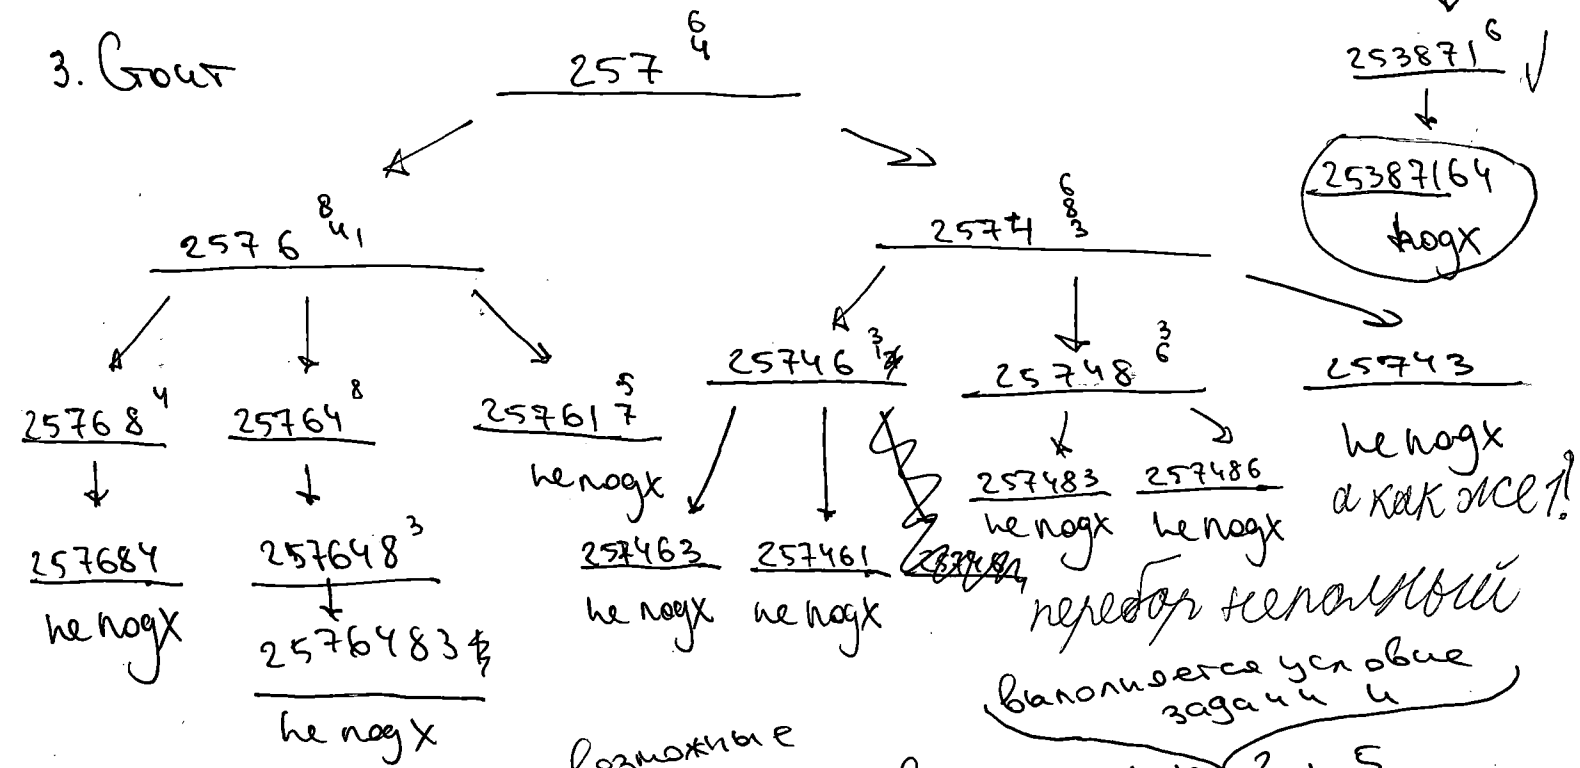 3. Стоит
257 6 4
253871 6
25387164
подх
2576 8 4 1
2574 6 8 3
25768 4
25764 8
25761 5 7
не подх
25746 3 1
25748 3 6
25743
не подх
а как же 1?
257684
не подх
257648 3
2576483
не подх
257463
не подх
257461
не подх
257483
не подх
257486
не подх
перебор неполный
выполняется условие
задачи и
возможные
2, 5